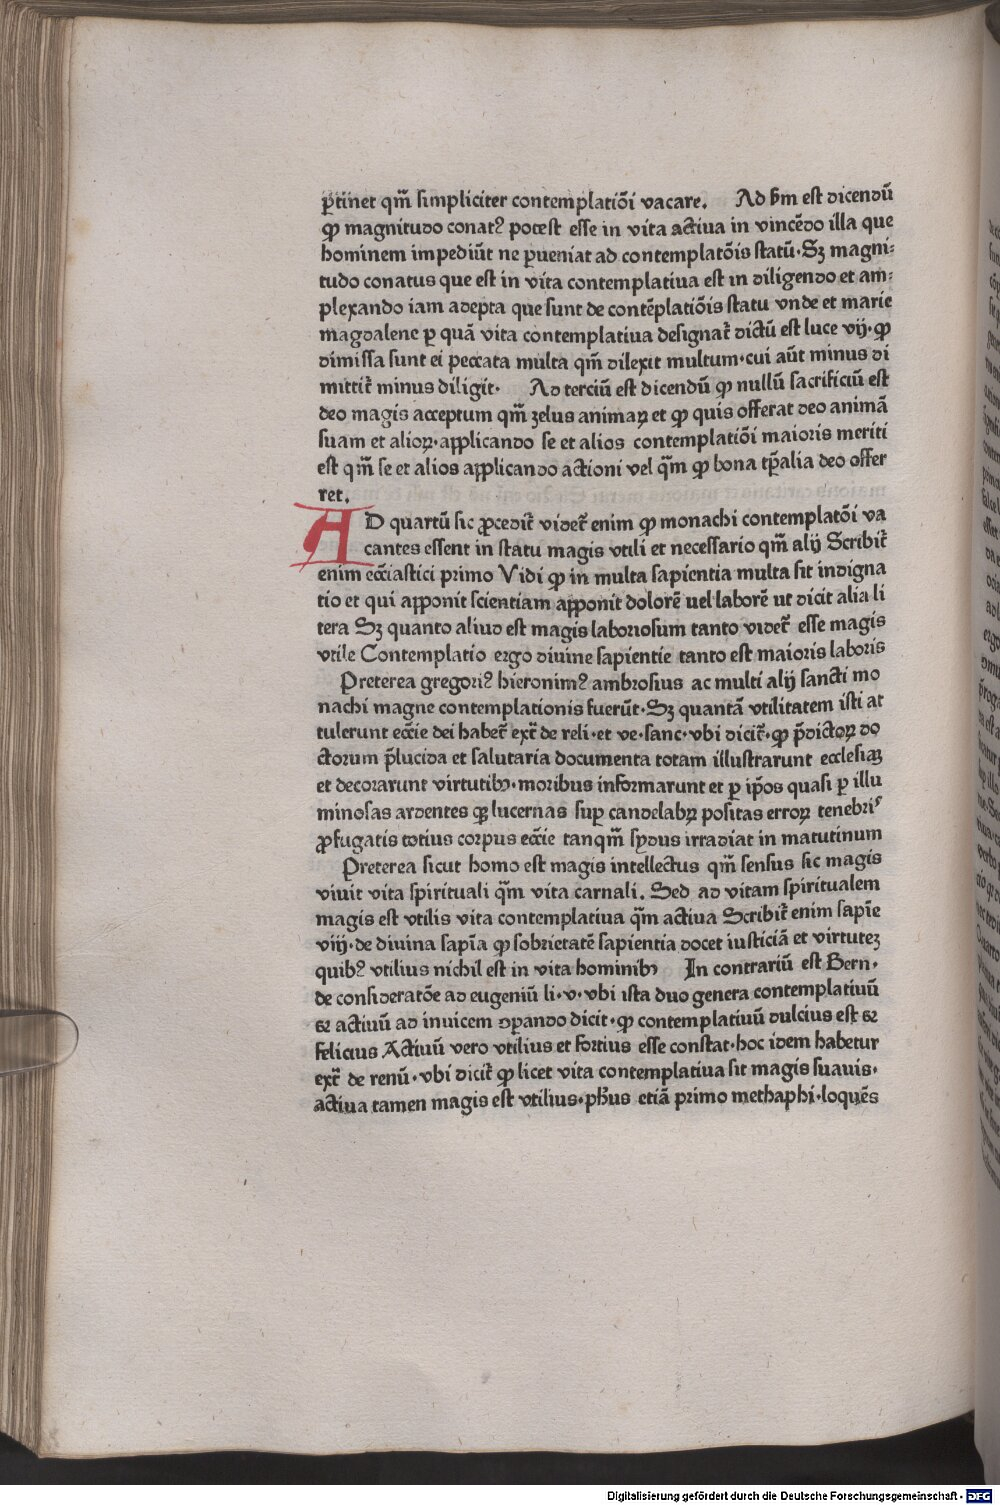 ꝑtinet qm̄ simpliciter contemplatiōi vacare. Ad s̄m est dicendū
ꝙ magnitudo conatꝰ potest esse in vita actiua in vincēdo illa que
hominem impediūt ne ꝑueniat ad contemplatōis statū· Sꝫ magni⸗
tudo conatus que est in vita contemplatiua est in diligendo et am⸗
plexando iam adepta que sunt de contēplatiōis statu vnde et marie
magdalene ꝑ quā vita contemplatiua designat᷑ dictū est luce vij· ꝙ
dimissa sunt ei peccata multa qm̄ dilexit multum· cui aūt minus di
mittit᷑ minus diligit· Ad terciū est dicendū ꝙ nullū sacrificiū est
deo magis acceptum qm̄ zelus animaꝝ et ꝙ quis offerat deo animā
suam et alioꝝ· applicando se et alios contemplatiōi maioris meriti
est qm̄ se et alios applicando actioni vel qm̄ ꝙ bona tp̄alia deo offer
ret.
AD quartū sic ꝓcedit᷑ videt᷑ enim ꝙ monachi contemplatōi va
cantes essent in statu magis vtili et necessario qm̄ alij Scribit᷑
enim ecc̄iastici primo Vidi ꝙ in multa sapientia multa sit indigna
tio et qui apponit scientiam apponit dolorē uel laborē ut dicit alia li
tera Sꝫ quanto aliud est magis laboriosum tanto videt᷑ esse magis
vtile Contemplatio ergo diuine sapientie tanto est maioris laboris
Preterea gregoriꝰ hieronimꝰ ambrosius ac multi alij sancti mo
nachi magne contemplationis fuerūt· Sꝫ quantā vtilitatem isti at
tulerunt ecc̄ie dei habet᷑ ext᷑ de reli· et ve· sanc· vbi dicit᷑· ꝙ p̄dictoꝝ do
ctorum p̄lucida et salutaria documenta totam illustrarunt ecclesiaꝫ
et decorarunt virtutibꝫ· moribus informarunt et ꝑ ip̄os quasi ꝑ illu
minosas ardentes qꝫ lucernas suꝑ candelabꝝ positas erroꝝ tenebris
ꝓfugatis totius corpus ecc̄ie tanqm̄ sydus irradiat in matutinum
Preterea sicut homo est magis intellectus qm̄ sensus sic magis
viuit vita spirituali qm̄ vita carnali. Sed ad vitam spiritualem
magis est vtilis vita contemplatiua qm̄ actiua Scribit᷑ enim sapīe
viij· de diuina sapīa ꝙ sobrietatē sapientia docet iusticiā et virtuteꝫ
quibꝰ vtilius nichil est in vita hominibꝫ In contrariū est Bern·
de consideratōe ad eugeniū li· v· vbi ista duo genera contemplatiuū
⁊ actiuū ad inuicem ꝯparando dicit· ꝙ contemplatiuū dulcius est ⁊
felicius Actiuū vero vtilius et fortius esse constat· hoc idem habetur
ext᷑ de renū· vbi dicit᷑ ꝙ licet vita contemplatiua sit magis suauis·
actiua tamen magis est vtilius· ph̄us etiā primo methaphi· loquēs
Digitalisierung gefördert durch die Deutsche Forschungsgemeinschaft - DFG